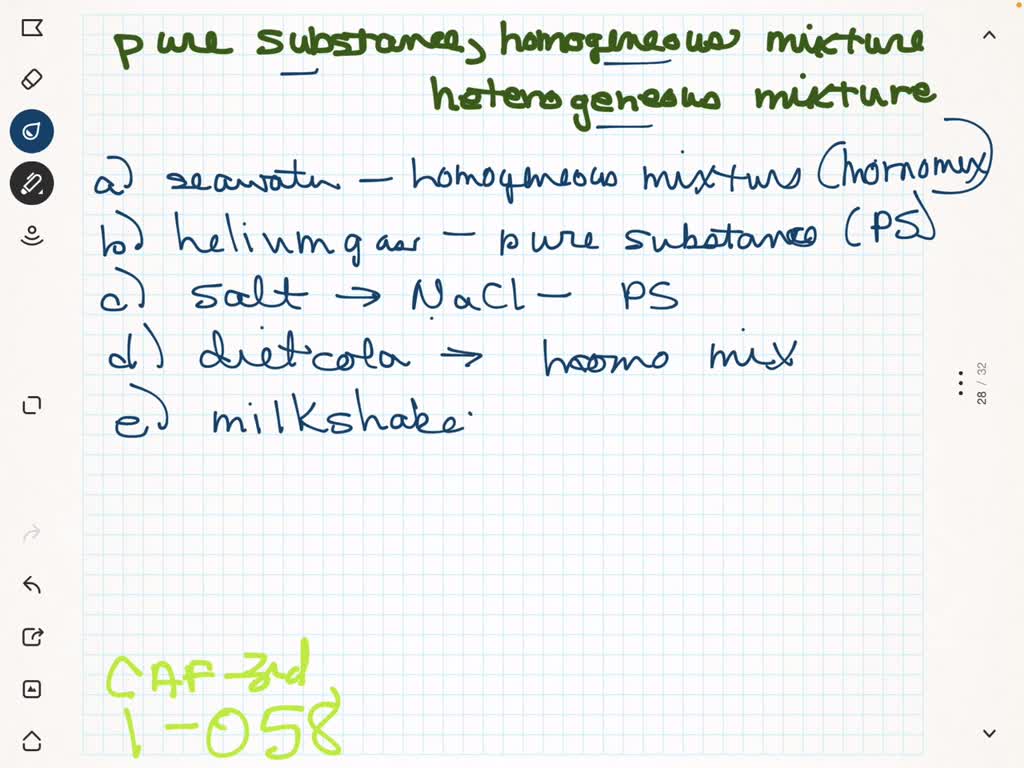 pure substance, homogeneous mixture
heterogeneous mixture
a) seawater – homogeneous mixturs (homomix)
b) helium gas – pure substance (PS)
c) salt → NaCl – PS
d) diet cola → homo mix
e) milkshake
28 / 32
CAF-3rd
1-058